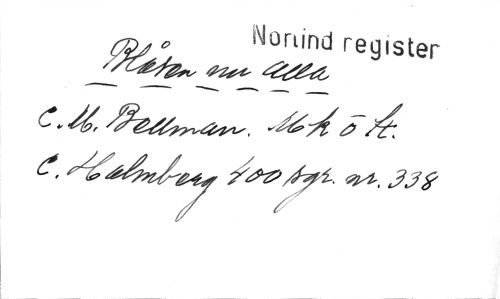 Norlind register
Blåsen nu alla
C. M. Bellman. Mk o St.
C. Halmberg 400 sgr. nr. 338